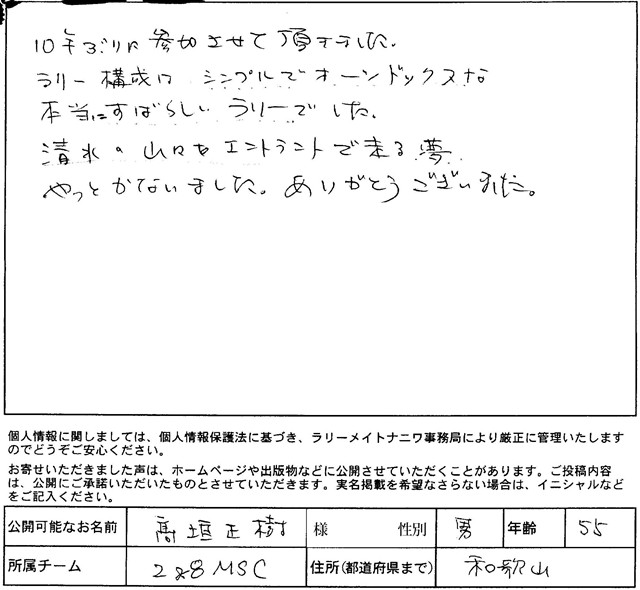 10年ぶりに参加させて頂きました。
ラリー構成は シンプルでオーソドックスな
本当にすばらしい ラリーでした。
清水の山々をエントラントで走る夢
やっとかないました。ありがとうございました。
個人情報に関しましては、個人情報保護法に基づき、ラリーメイトナニワ事務局により厳正に管理いたします
のでどうぞご安心ください。
お寄せいただきました声は、ホームページや出版物などに公開させていただくことがあります。ご投稿内容
は、公開にご承諾いただいたものとさせていただきます。実名掲載を希望なさらない場合は、イニシャルなど
をご記入ください。
公開可能なお名前 髙垣正樹 様 性別 男 年齢 55
所属チーム 2&8 MSC 住所(都道府県まで) 和歌山